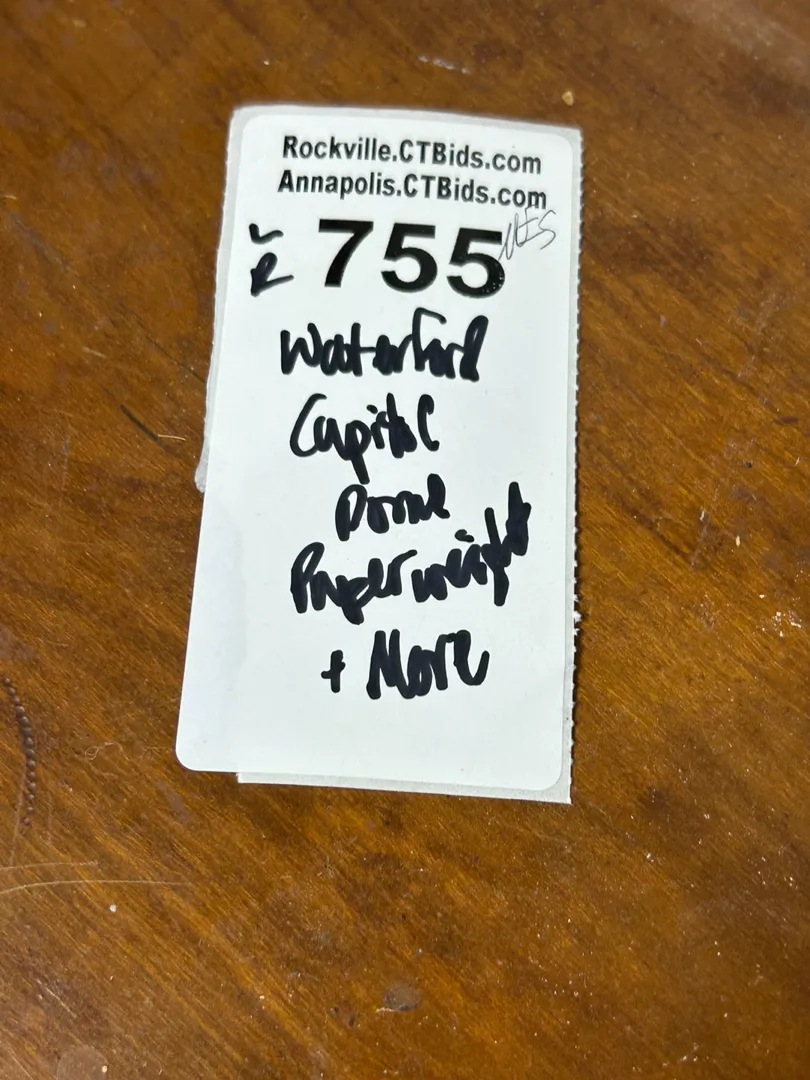 Rockville.CTBids.com
Annapolis.CTBids.com
L
R 755
Waterford
Capitol
Dome
Paperweight
+ More